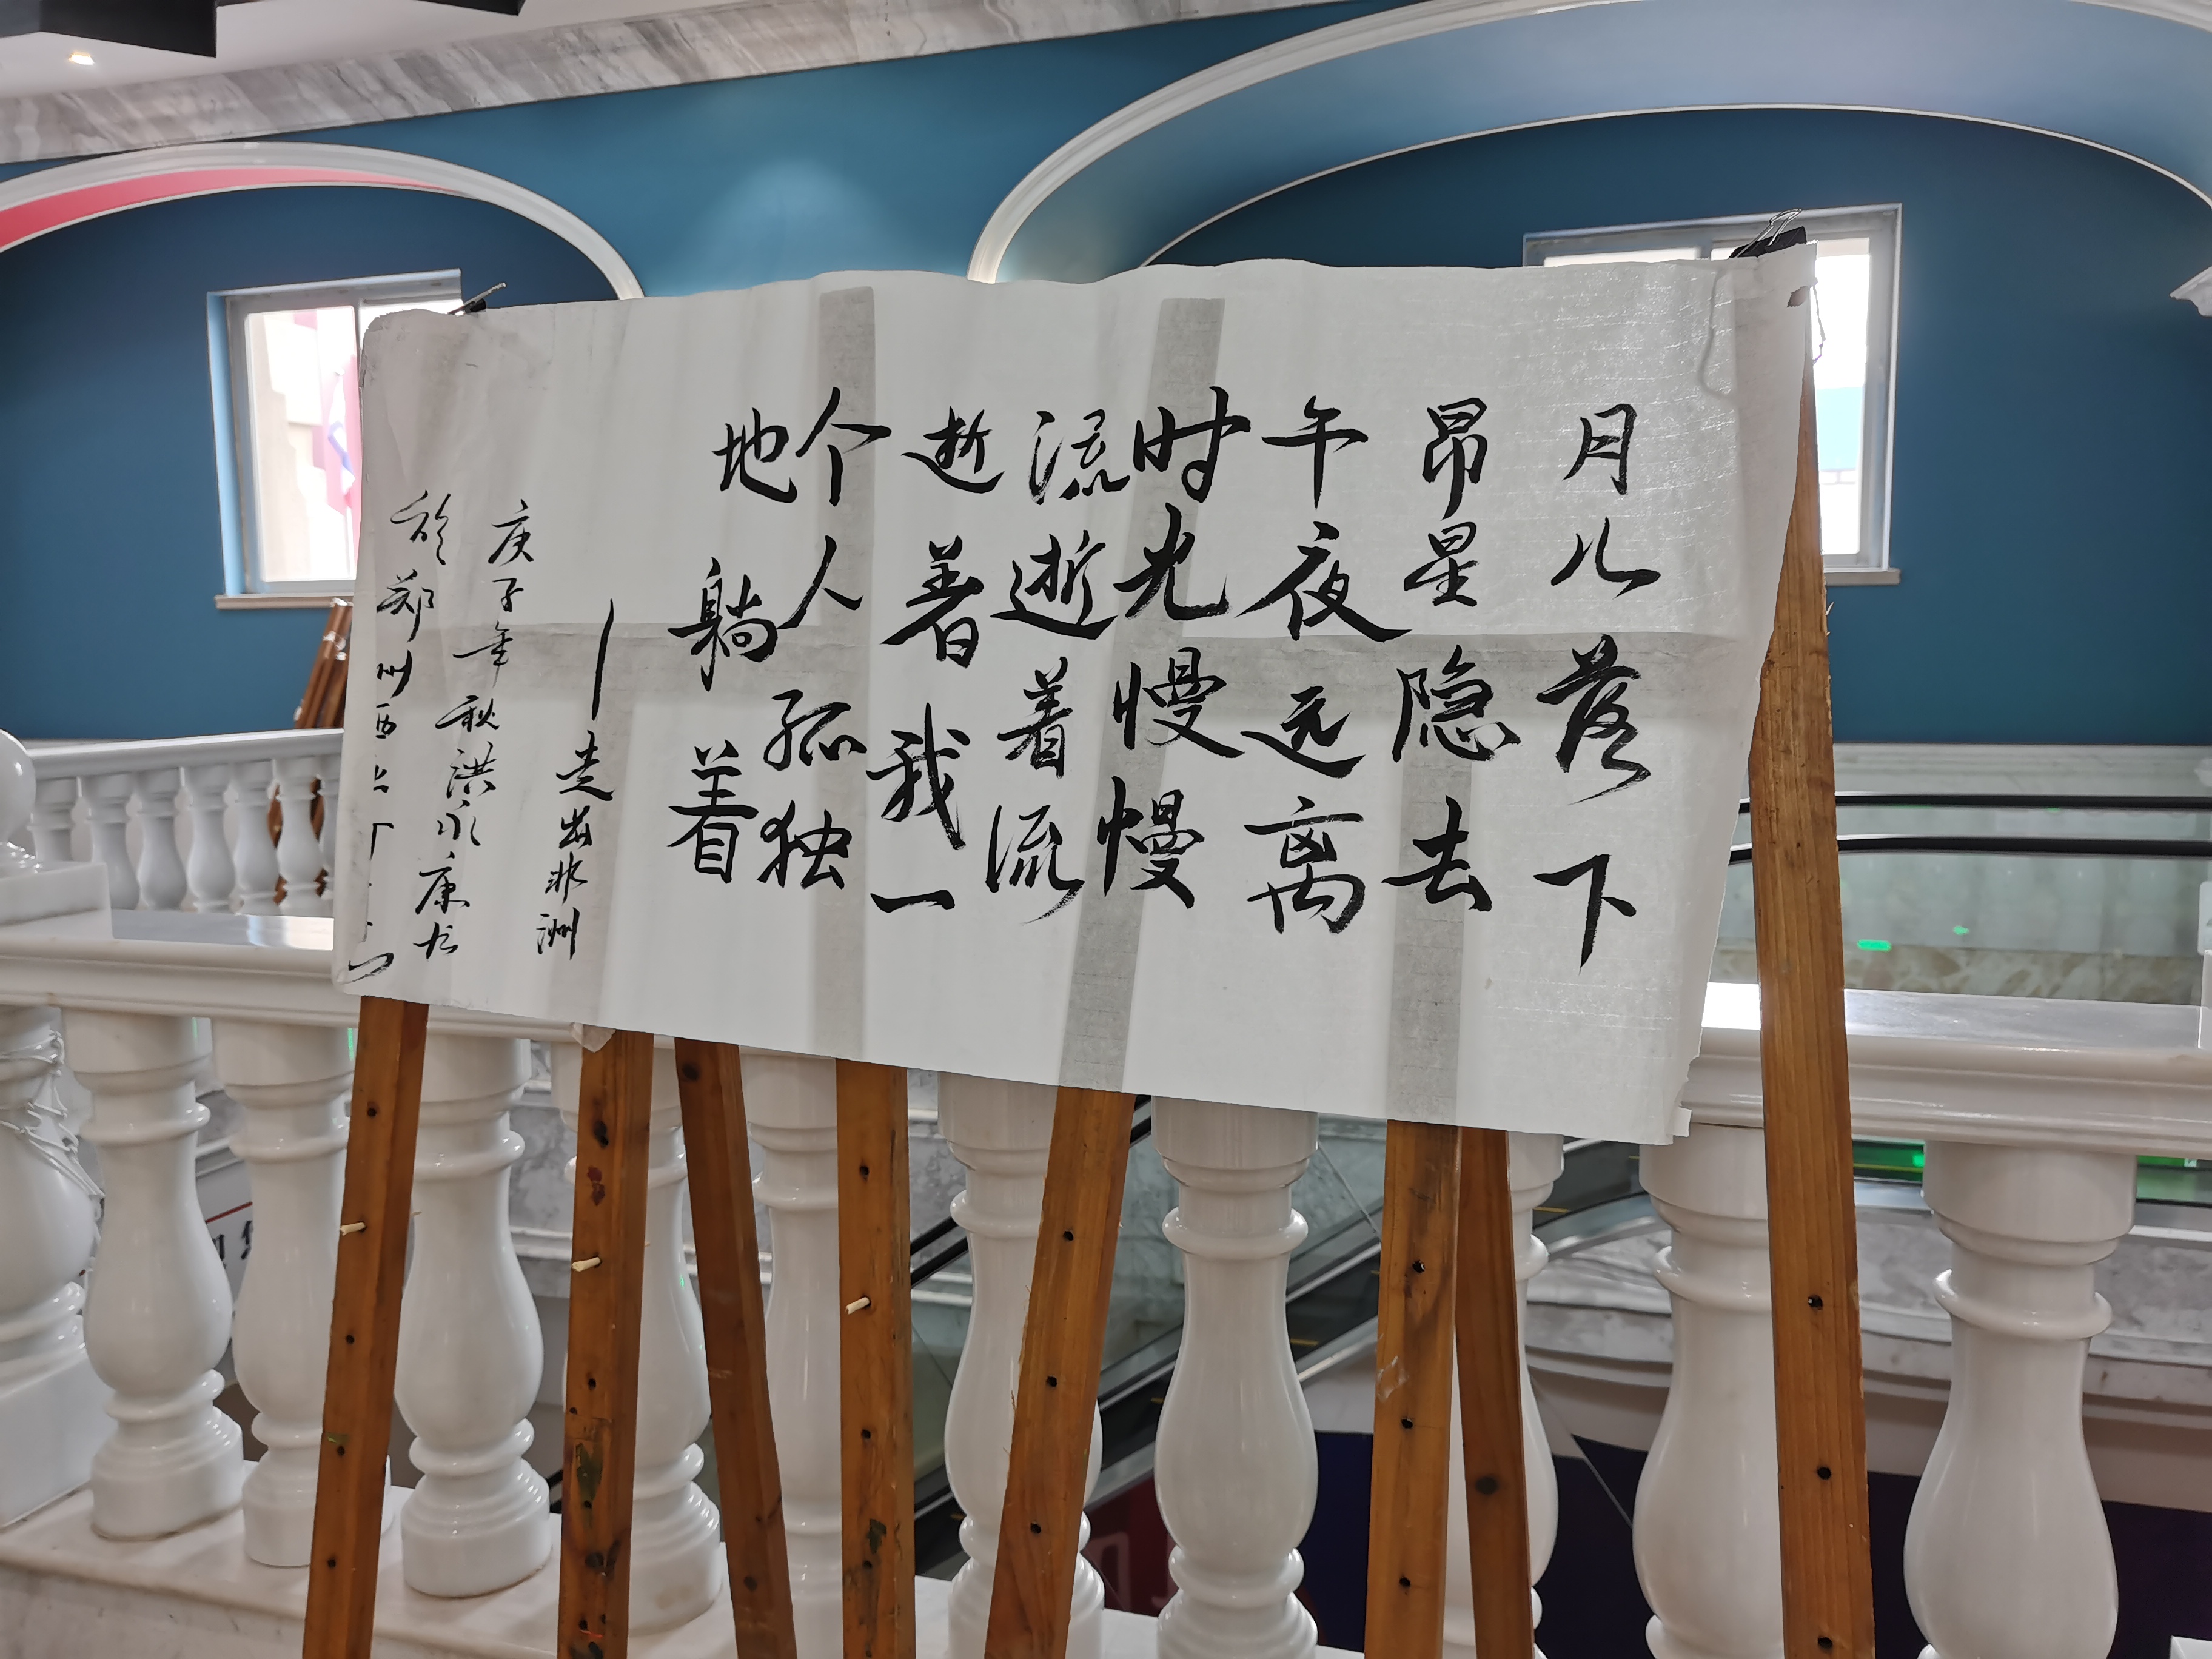 月儿落下
昂星隐去
午夜远离
时光慢慢
流逝着流
逝着我一
个人孤独
地躺着
—走出非洲
庚子年秋洪永康书
於郑州西